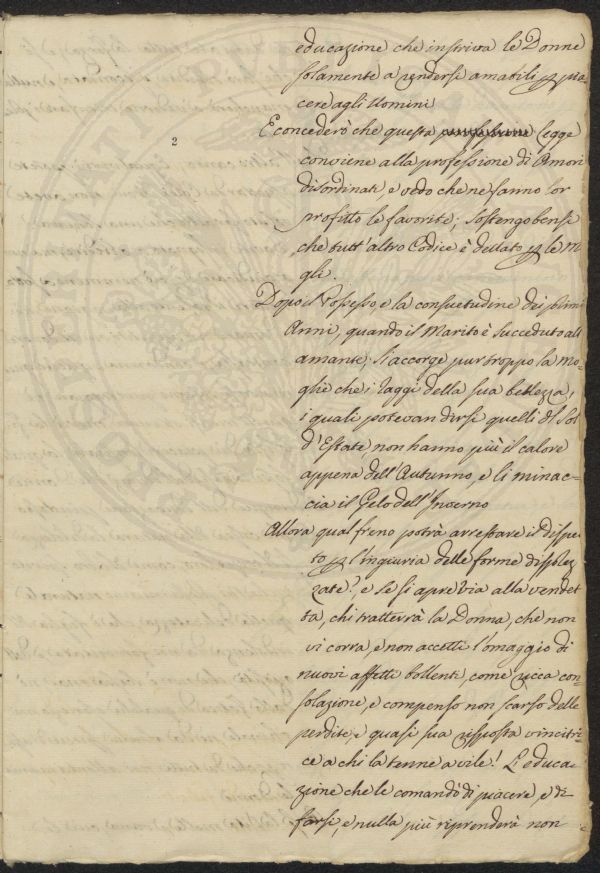 2
educazione che instriva le Donne
solamente a rendersi amabili p pia
cere agli Uomini
E concederò che questa legge
conviene alla professione di Amori
disordinati e vedo che ne fanno lor
profitto le favorite; Sostengo bensì
che tutt'altro Codice è dettato p le Mo
gli.
Dopo il Possesso, e la consuetudine dei primi
Anni, quando il Marito è succeduto all
amante; s'accorge pur troppo la Mo-
glie che i raggi della sua bellezza,
i quali potevan dirsi quelli d Sol
d'Estate non hanno più il calore
appena dell'Autunno, e li minac-
cia il Gelo dell'Inverno
Allora qual freno potrà arrestare il Dispe
to p l'ingiuria delle forme disprez
zate?, e se si apre via alla vendet
ta, chi tratterrà la Donna, che non
vi corra, e non accetti l'omaggio di
nuovi affetti bollenti, come ricca con-
solazione, e compenso non scarso delle
perdite, e quasi sua risposta vincitri-
ce a chi la tenne a vile! L'educa-
zione che le comandò di piacere, e di
farsi, e nulla più riprenderà non